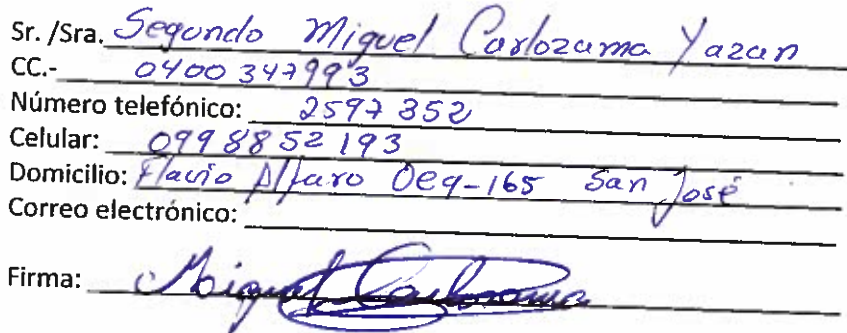 Sr. /Sra. Segundo Miguel Carlozama Yazan
CC.- 0400347993
Número telefónico: 2597352
Celular: 0998852193
Domicilio: Flavio Alfaro Oe9-165 San José
Correo electrónico:
Firma: Miguel Carlozama